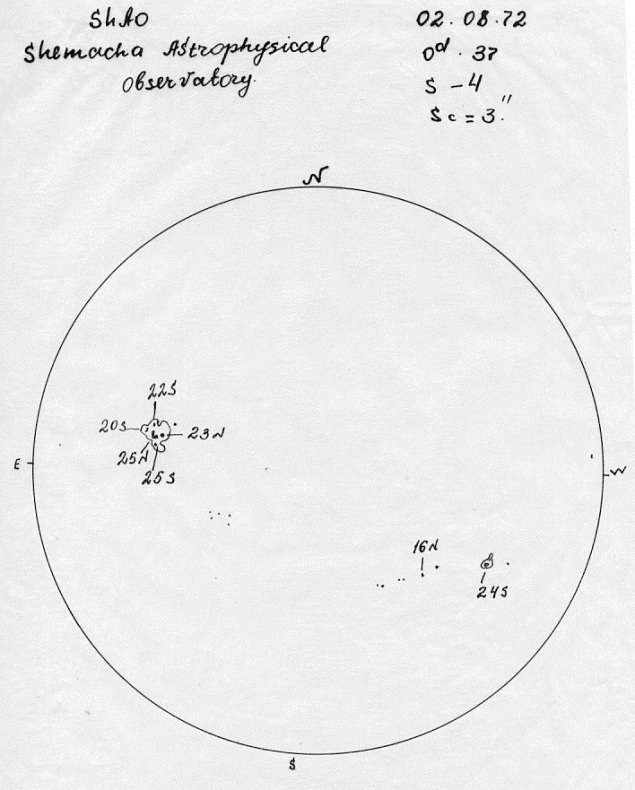 ShAO
Shemacha Astrophysical
Observatory.
02.08.72
0d.37
S -4
Sc = 3."
N
22S
20S
23N
25N
25S
E
W
16N
24S
S